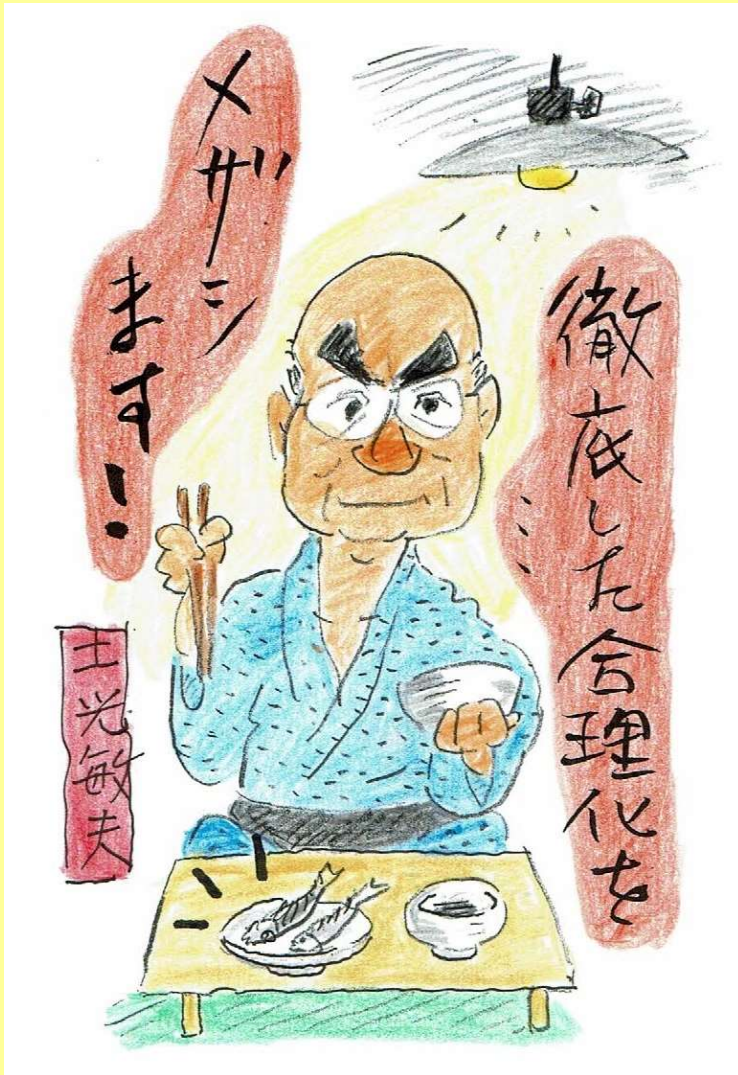 徹底した合理化を
・・・
メザシ
ます!
土光敏夫